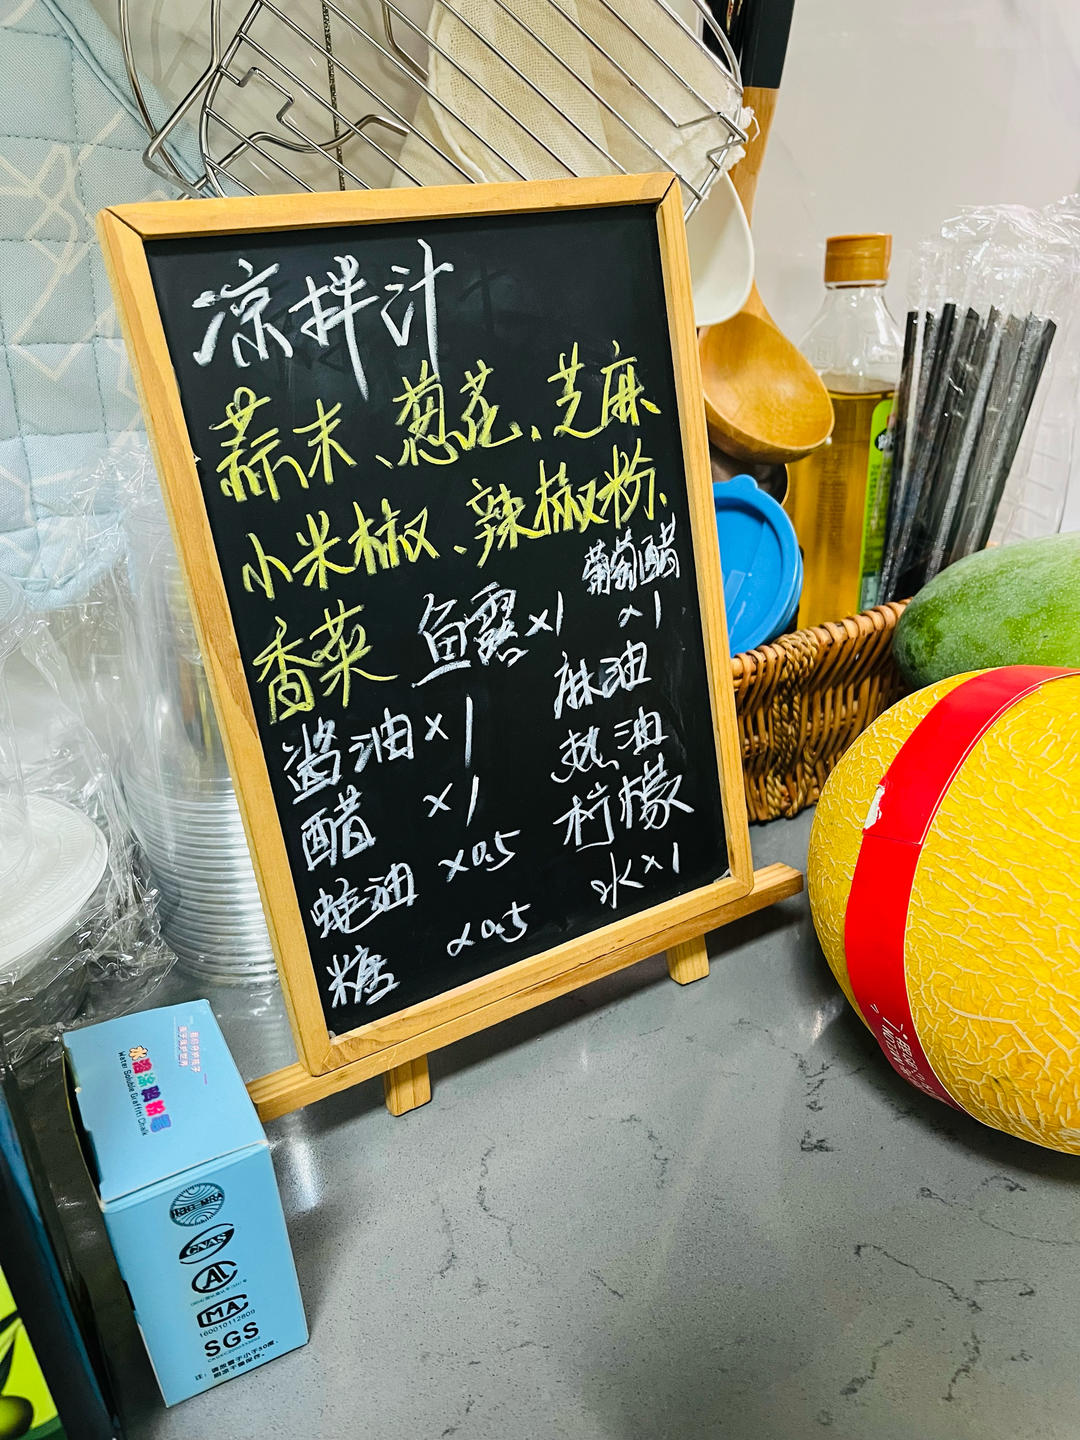 凉拌汁
蒜末、葱花、芝麻
小米椒、辣椒粉、
香菜
鱼露×1
葡萄醋
×1
酱油×1
麻油
醋 ×1
热油
蚝油 ×0.5
柠檬
糖 ×0.5
水×1
水溶涂鸦粉笔
Water Soluble Graffiti Chalk
CNAS
AL
MA
160010112809
SGS